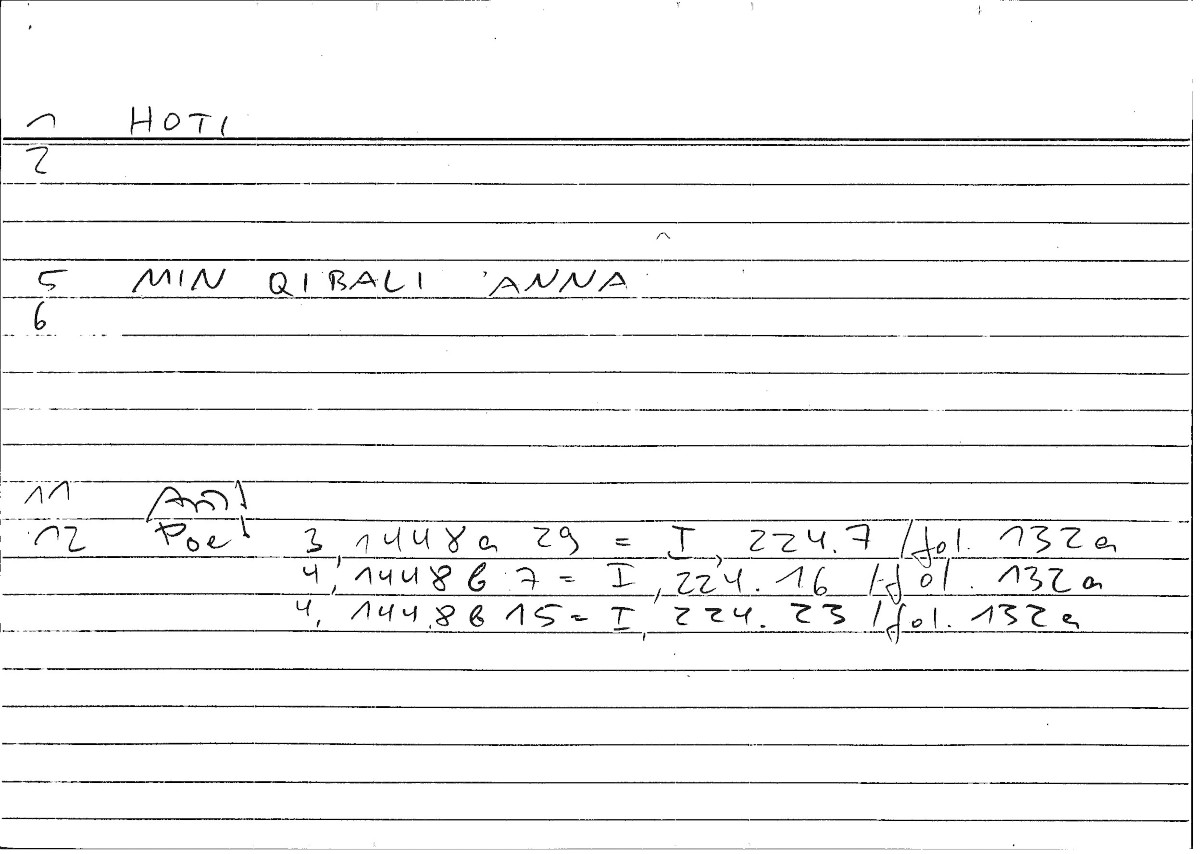 1 HOTI
2
5 MIN QIBALI 'ANNA
6
11 Arist
12 Poet 3, 1448a 29 = I, 224.7 / fol. 132a
4, 1448b 7 = I, 224.16 / fol. 132a
4, 1448b 15 = I, 224.23 / fol. 132a